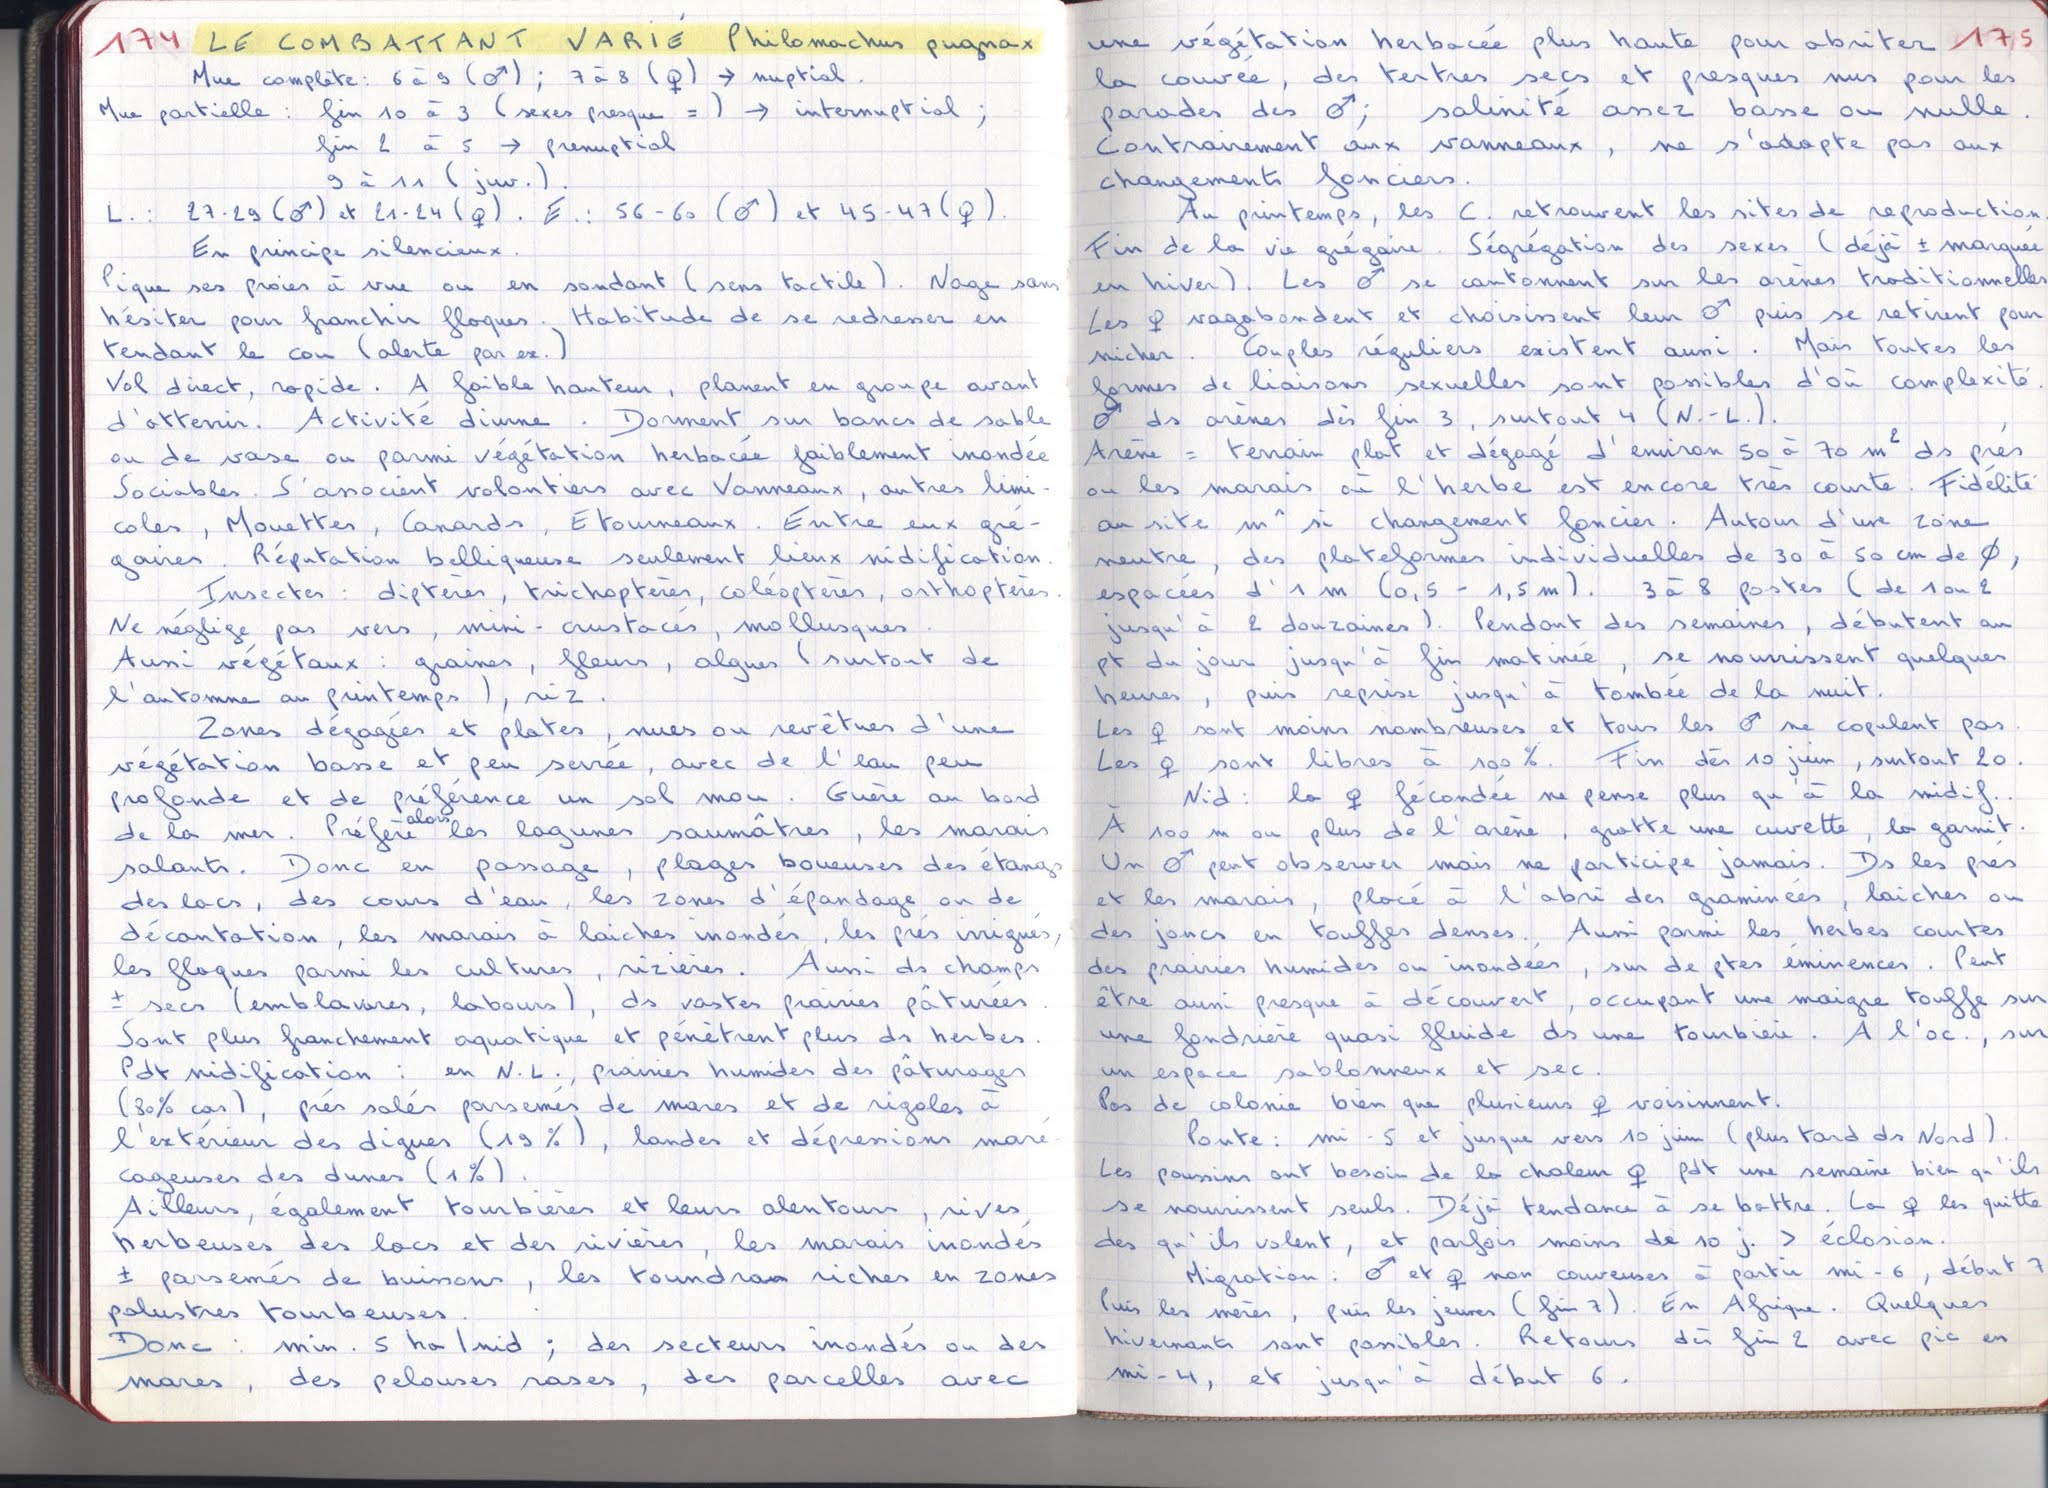 174 LE COMBATTANT VARIÉ Philomachus pugnax
Mue complète : 6 à 9 (♂) ; 7 à 8 (♀) → nuptial.
Mue partielle : fin 10 à 3 (sexes presque =) → internuptial ;
fin 2 à 5 → prénuptial
9 à 11 (juv.).
L. : 27-29 (♂) et 21-24 (♀). E. : 56-60 (♂) et 45-47 (♀).
En principe silencieux.
Pique ses proies à vue ou en sondant (sens tactile). Nage sans
hésiter pour franchir flaques. Habitude de se redresser en
tendant le cou (alerte par ex.)
Vol direct, rapide. A faible hauteur, planent en groupe avant
d'atterrir. Activité diurne. Dorment sur bancs de sable
ou de vase ou parmi végétation herbacée faiblement inondée
Sociables. S'associent volontiers avec Vanneaux, autres limi-
coles, Mouettes, Canards, Etourneaux. Entre eux gré-
gaires. Réputation belliqueuse seulement lieux nidification.
Insectes : diptères, trichoptères, coléoptères, orthoptères.
Ne néglige pas vers, mini-crustacés, mollusques.
Aussi végétaux : graines, fleurs, algues (surtout de
l'automne au printemps), riz.
Zones dégagées et plates, nues ou revêtues d'une
végétation basse et peu serrée, avec de l'eau peu
profonde et de préférence un sol mou. Guère au bord
de la mer. Préfère alors les lagunes saumâtres, les marais
salants. Donc en passage, plages boueuses des étangs
des lacs, des cours d'eau, les zones d'épandage ou de
décantation, les marais à laiches inondés, les prés irrigués,
les flaques parmi les cultures, rizières. Aussi ds champs
± secs (emblavures, labours), ds vastes prairies pâturées.
Sont plus franchement aquatique et pénètrent plus ds herbes.
Pdt nidification : en N.L., prairies humides des pâturages
(80% cas), prés salés parsemés de mares et de rigoles à
l'extérieur des digues (19%), landes et dépressions maré-
cageuses des dunes (1%).
Ailleurs, également tourbières et leurs alentours, rives
herbeuses des lacs et des rivières, les marais inondés
± parsemés de buissons, les toundras riches en zones
palustres tourbeuses.
Donc : min. 5 ha/nid ; des secteurs inondés ou des
mares, des pelouses rases, des parcelles avec
une végétation herbacée plus haute pour abriter 175
la couvée, des tertres secs et presques nus pour les
parades des ♂ ; salinité assez basse ou nulle.
Contrairement aux vanneaux, ne s'adapte pas aux
changements fonciers.
Au printemps, les C. retrouvent les sites de reproduction.
Fin de la vie grégaire. Ségrégation des sexes (déjà ± marquée
en hiver). Les ♂ se cantonnent sur les arènes traditionnelles
Les ♀ vagabondent et choisissent leur ♂ puis se retirent pour
nicher. Couples réguliers existent aussi. Mais toutes les
formes de liaisons sexuelles sont possibles d'où complexité.
♂ ds arènes dès fin 3, surtout 4 (N.-L.).
Arène = terrain plat et dégagé d'environ 50 à 70 m² ds prés
ou les marais où l'herbe est encore très courte. Fidélité
au site m^ si changement foncier. Autour d'une zone
neutre, des plateformes individuelles de 30 à 50 cm de Ø,
espacées d'1 m (0,5 - 1,5 m). 3 à 8 postes (de 1 ou 2
jusqu'à 2 douzaines). Pendant des semaines, débutent au
pt du jour jusqu'à fin matinée, se nourrissent quelques
heures, puis reprise jusqu'à tombée de la nuit.
Les ♀ sont moins nombreuses et tous les ♂ ne copulent pas.
Les ♀ sont libres à 100%. Fin dès 10 juin, surtout 20.
Nid : la ♀ fécondée ne pense plus qu'à la nidif..
À 100 m ou plus de l'arène, gratte une cuvette, la garnit.
Un ♂ peut observer mais ne participe jamais. Ds les prés
et les marais, placé à l'abri des graminées, laiches ou
des joncs en touffes denses. Aussi parmi les herbes courtes
des prairies humides ou inondées, sur de ptes éminences. Peut
être aussi presque à découvert, occupant une maigre touffe sur
une fondrière quasi fluide ds une tourbière. A l'oc., sur
un espace sablonneux et sec.
Pas de colonie bien que plusieurs ♀ voisinnent.
Ponte : mi-5 et jusque vers 10 juin (plus tard ds Nord).
Les poussins ont besoin de la chaleur ♀ pdt une semaine bien qu'ils
se nourrissent seuls. Déjà tendance à se battre. La ♀ les quitte
dès qu'ils volent, et parfois moins de 10 j. > éclosion.
Migration : ♂ et ♀ non couveuses à partir mi-6, début 7
Puis les mères, puis les jeunes (fin 7). En Afrique. Quelques
hivernants sont possibles. Retours dès fin 2 avec pic en
mi-4, et jusqu'à début 6.